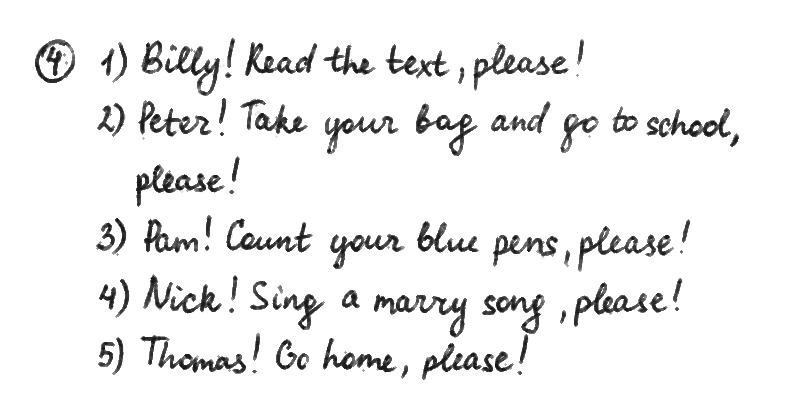 4 1) Billy! Read the text, please!
2) Peter! Take your bag and go to school,
please!
3) Pam! Count your blue pens, please!
4) Nick! Sing a marry song, please!
5) Thomas! Go home, please!